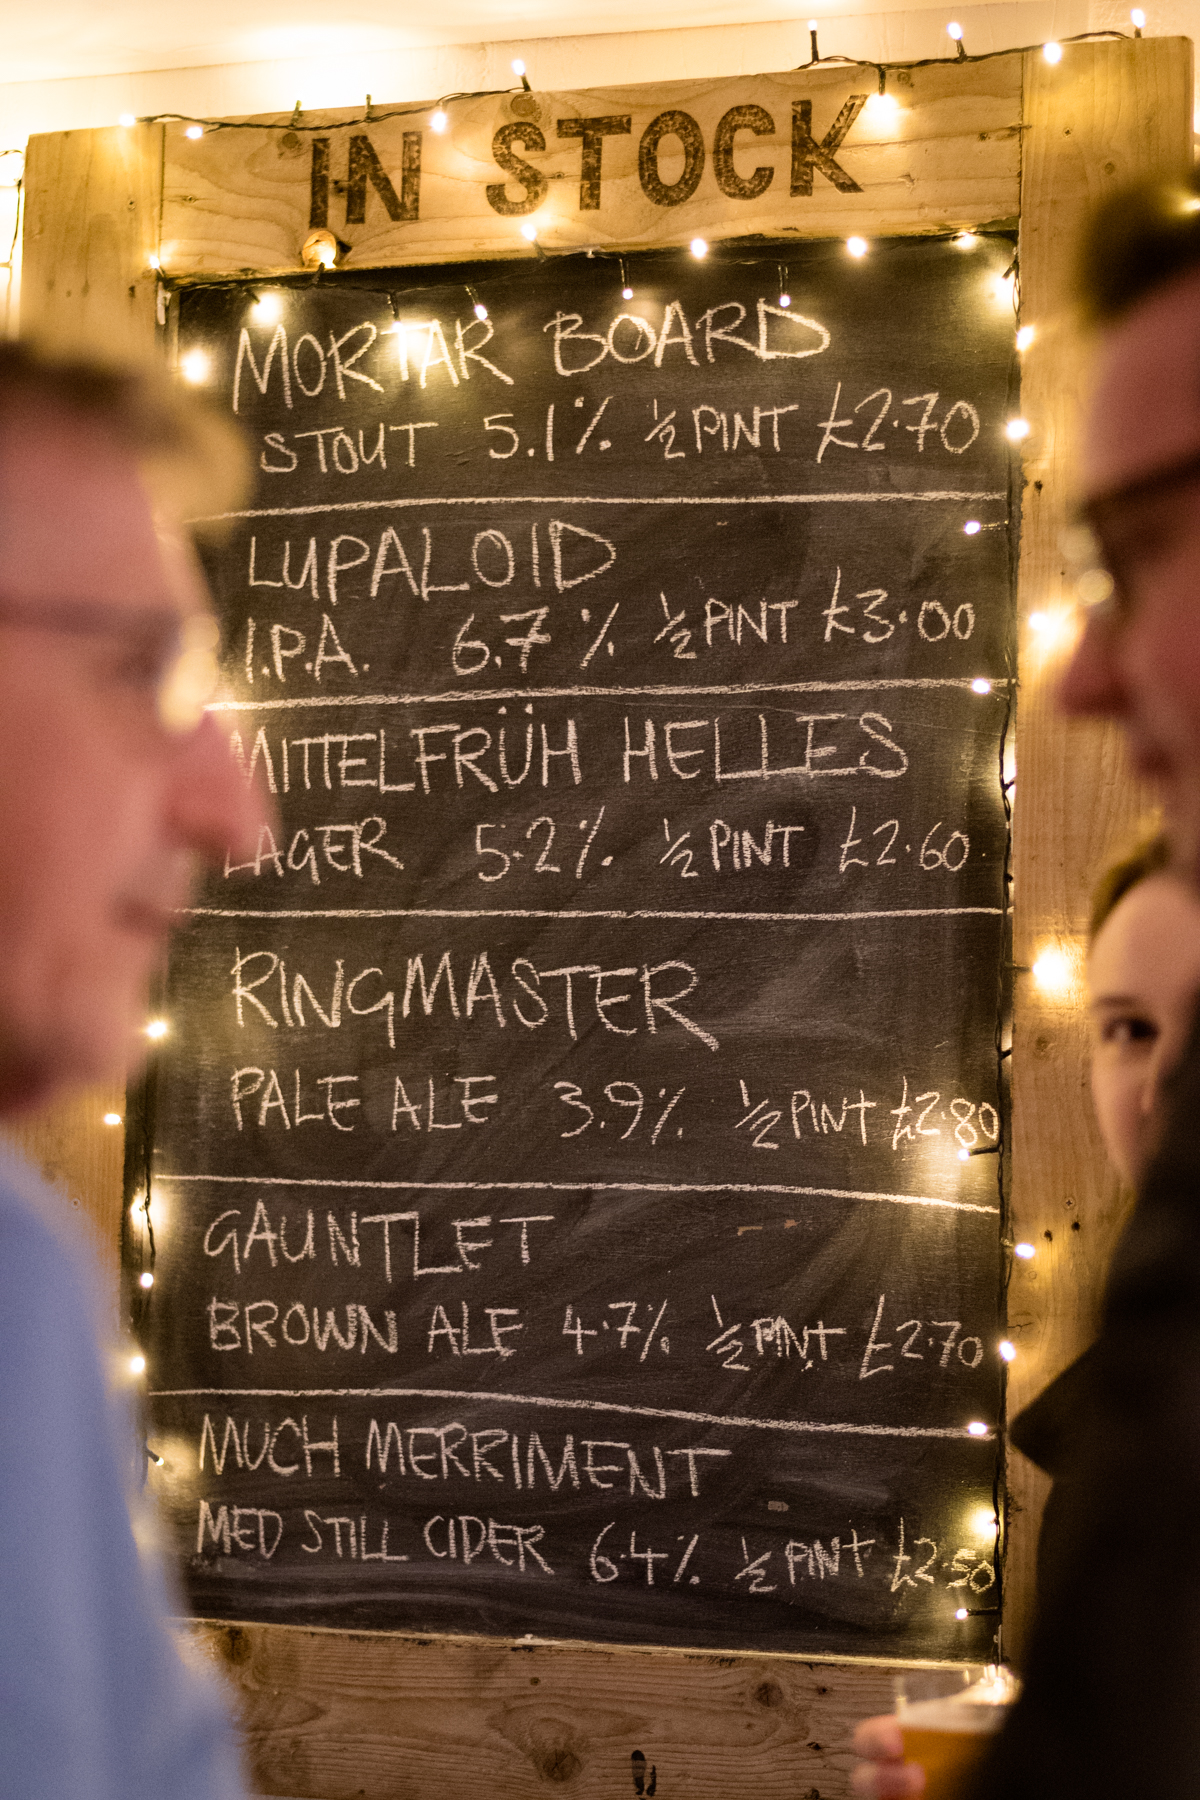 IN STOCK
MORTAR BOARD
STOUT 5.1% ½ PINT £2.70
LUPALOID
I.P.A. 6.7% ½ PINT £3.00
MITTELFRÜH HELLES
LAGER 5.2% ½ PINT £2.60
RINGMASTER
PALE ALE 3.9% ½ PINT £2.80
GAUNTLET
BROWN ALE 4.7% ½ PINT £2.70
MUCH MERRIMENT
MED STILL CIDER 6.4% ½ PINT £2.50